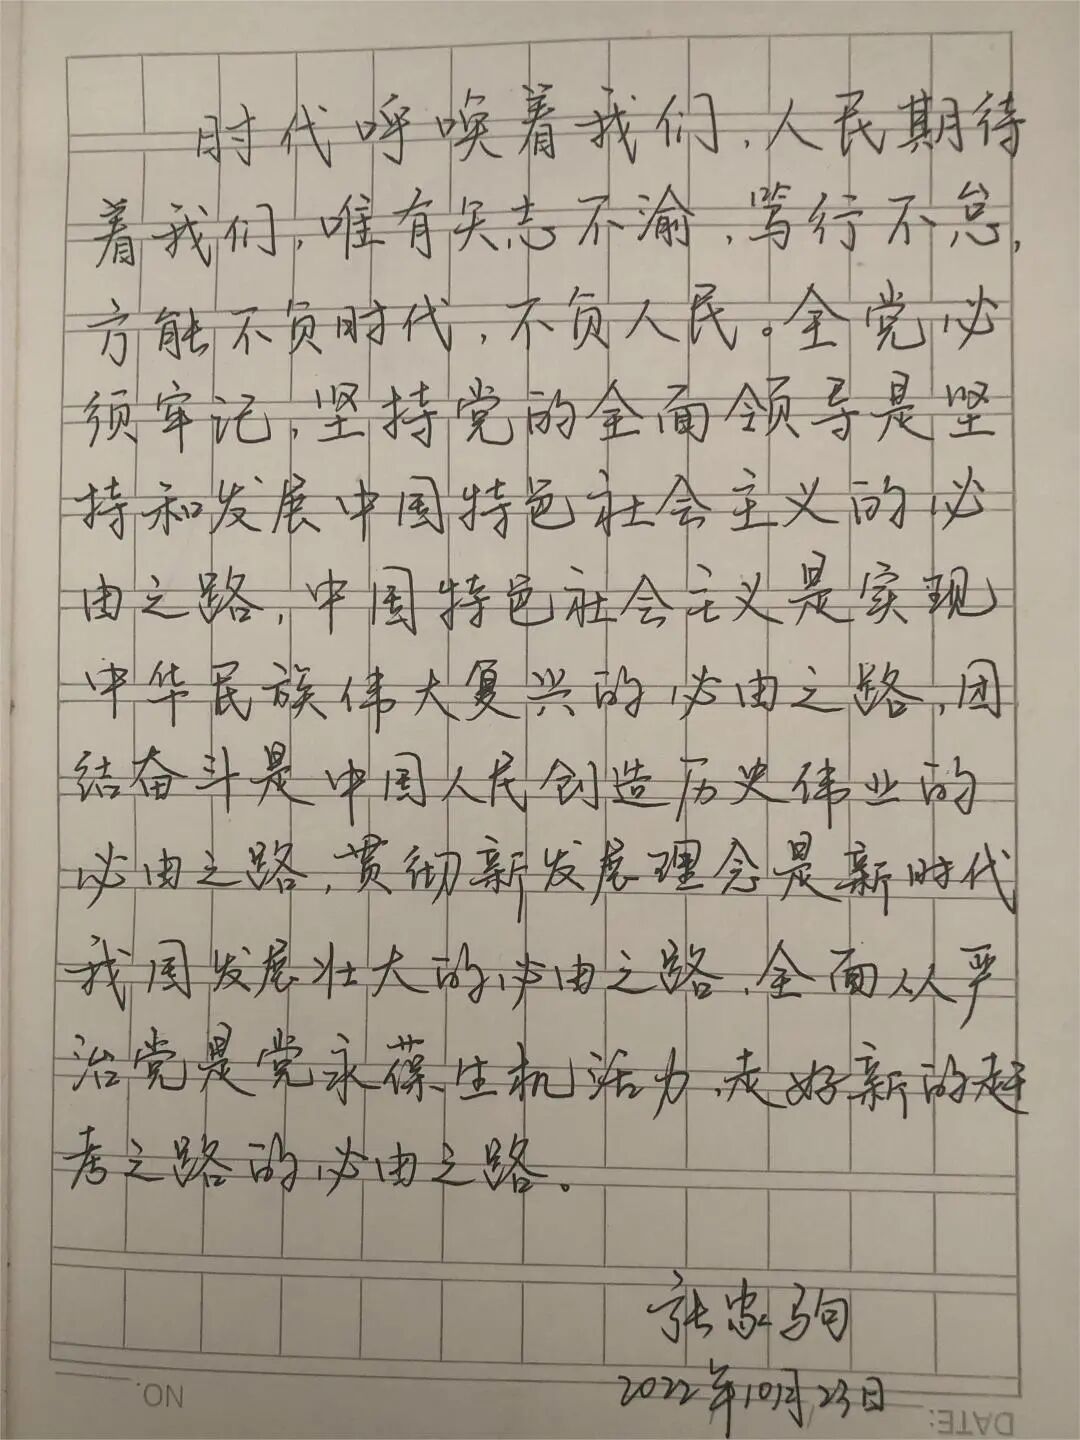 时代呼唤着我们,人民期待
着我们,唯有矢志不渝、笃行不怠,
方能不负时代、不负人民。全党必
须牢记,坚持党的全面领导是坚
持和发展中国特色社会主义的必
由之路,中国特色社会主义是实现
中华民族伟大复兴的必由之路,团
结奋斗是中国人民创造历史伟业的
必由之路,贯彻新发展理念是新时代
我国发展壮大的必由之路,全面从严
治党是党永葆生机活力、走好新的赶
考之路的必由之路。
2022年10月23日
NO.
DATE: